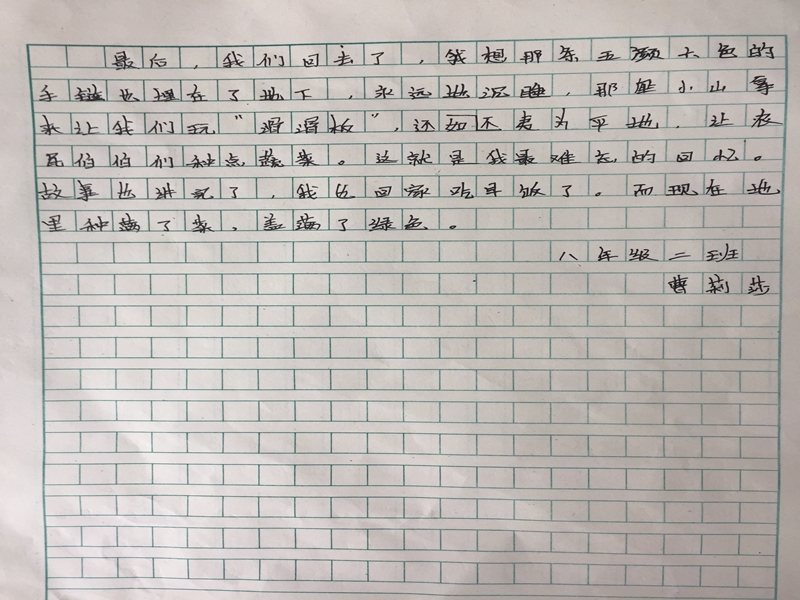 最后，我们回去了，我想那条五颜六色的
手链也埋在了地下，永远地沉睡，那座小山等
来让我们玩“滑滑板”，还如不夷为平地，让农
民伯伯们种点蔬菜。这就是我最难忘的回忆。
故事也讲完了，我也回家吃早饭了。而现在地
里种满了菜，盖满了绿色。
八年级二班
曹莉莎